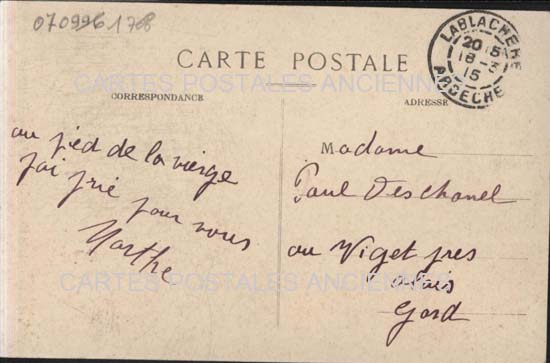 0709961708
CARTE POSTALE
LABLACHERE
20 15
18 - 3
15
ARDECHE
CARTES POSTALES ANCIENNES
CORRESPONDANCE
ADRESSE
au pied de la vierge
j'ai prié pour vous
Marthe
Madame
Paul Deschanel
au Viget pres
Alais
Gard
CARTES POSTALES ANCIENNES